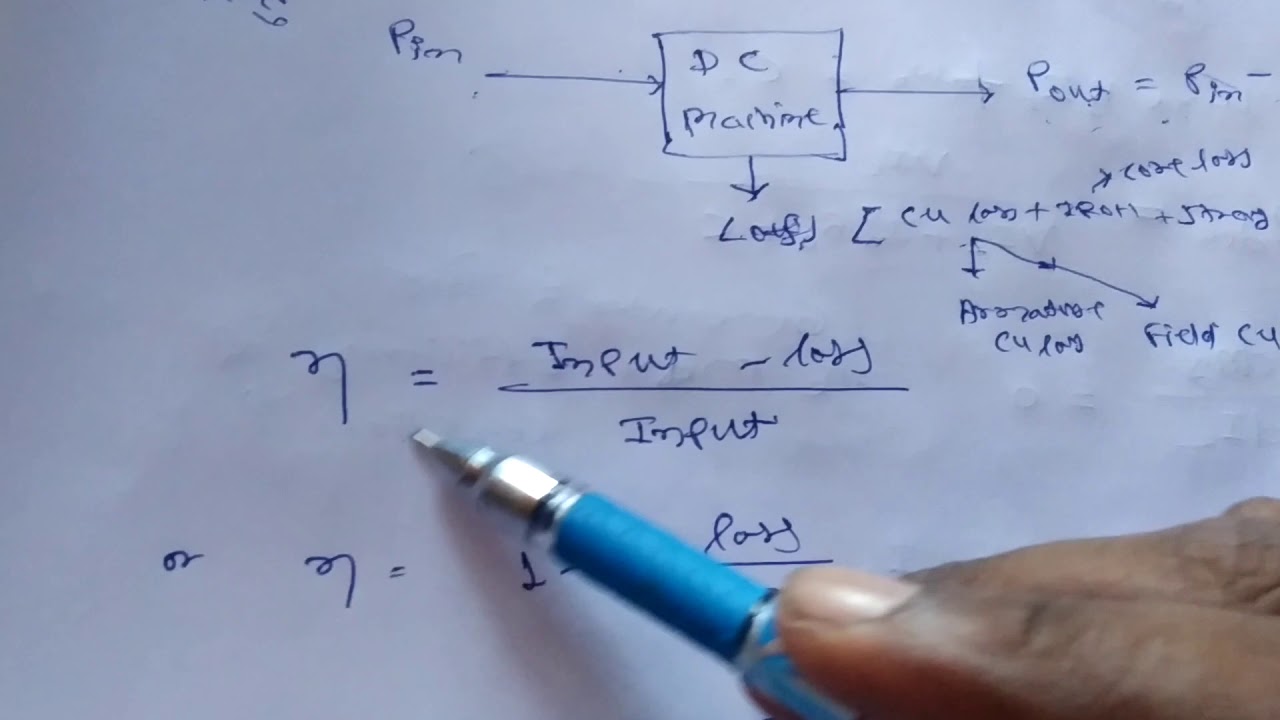 Pin
DC
Machine
Pout = Pin -
core loss
[ Cu loss + IRON + Stray
Armature
Cu loss
Field Cu
η = Input - loss
Input
or η = 1 - loss